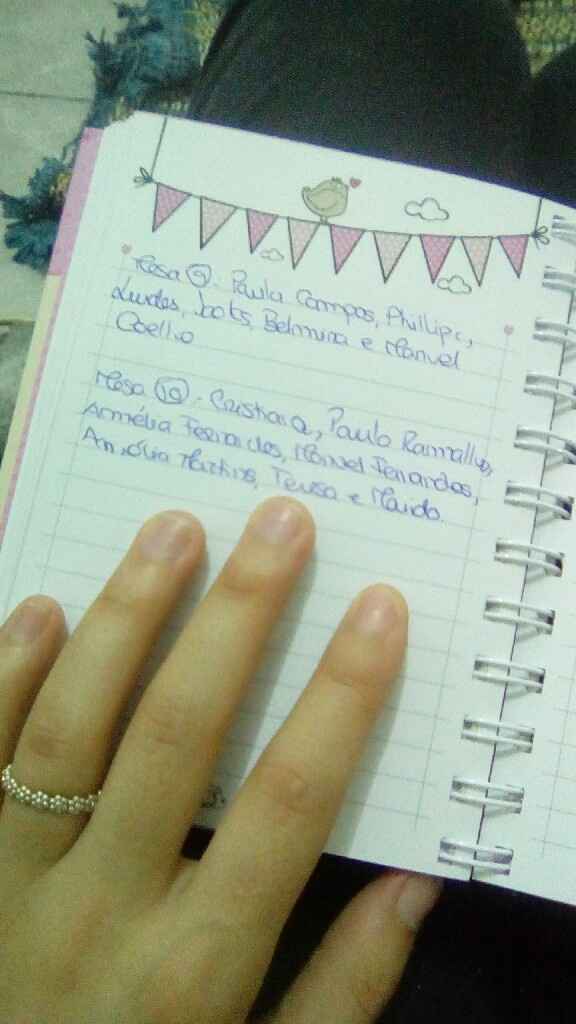 Mesa ⑨. Paula Campos, Phillipe,
Lurdes, Belmira e Manuel
Coelho
Mesa ⑩. Cristiana, Paulo Ramalho,
Armélia Fernandes, Manuel Fernandes,
Martins, Teresa e Marido.